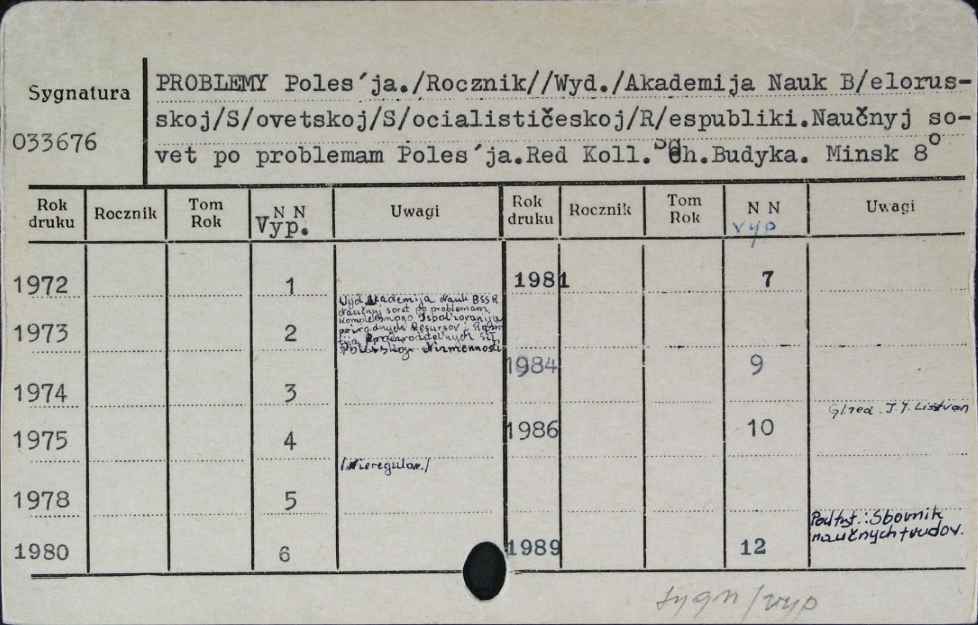 Sygnatura
033676
PROBLEMY Poles´ja./Rocznik//Wyd./Akademija Nauk B/elorus-
skoj/S/ovetskoj/S/ocialističeskoj/R/espubliki.Naučnyj so-
vet po problemam Poles´ja.Red Koll. h.Budyka. Minsk 8°
Rok druku Rocznik Tom Rok N N Vyp. Uwagi Rok druku Rocznik Tom Rok N N vyp Uwagi
1972 1 1981 7
Wyd Akademija Nauk BSSR
naučnyj sovet po problemam
1973 2
1984 9
1974 3
Gł/red. J.I. Listvan
1975 4 1986 10
/Nieregular./
1978 5
Podtyt.: Sbornik
naučnych trudov.
1980 6 1989 12
sygn/vyp